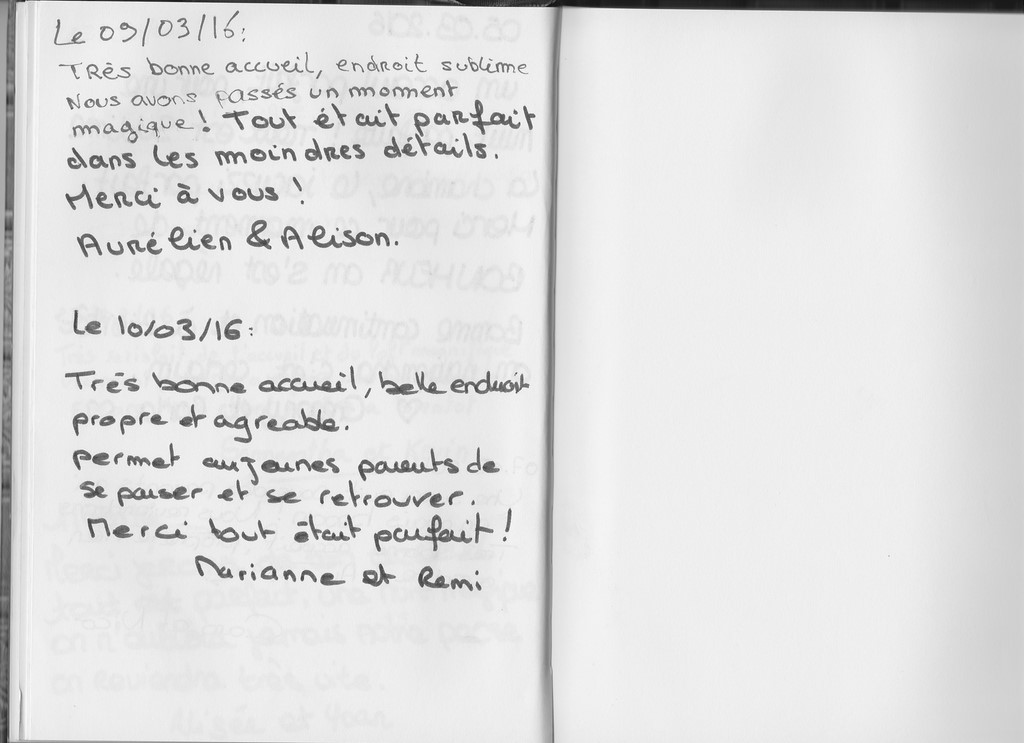 Le 09/03/16:
TRès bonne accueil, endroit sublime
Nous avons passés un moment
magique! Tout était parfait
dans les moindres détails.
Merci à vous!
Aurélien & Alison.
Le 10/03/16:
Très bonne accueil, belle endroit
propre et agreable.
permet aux jeunes parents de
se pauser et se retrouver.
Merci tout était parfait!
Marianne et Remi